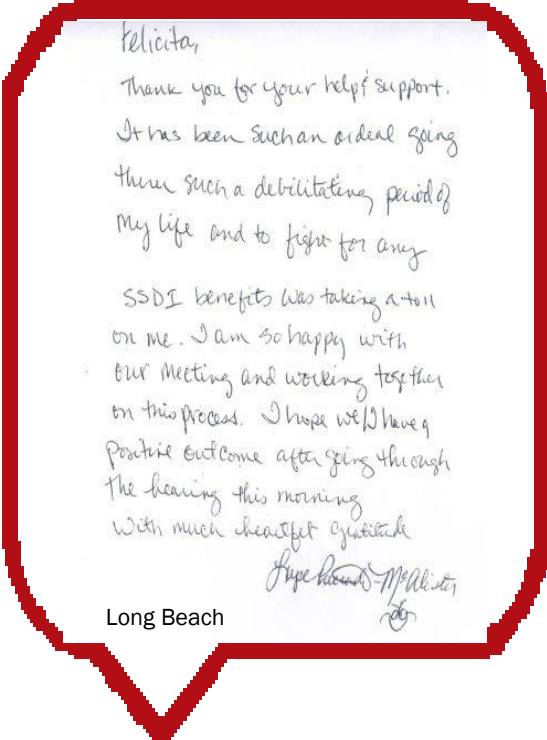 Felicita,
Thank you for your help & support.
It has been such an ordeal going
thru such a debilitating period of
My life and to fight for any
SSDI benefits was taking a toll
on me. I am so happy with
our meeting and working together
on this process. I hope we'll have a
positive outcome after going through
the hearing this morning
with much heartfelt gratitude
Lupe McAlister
Long Beach